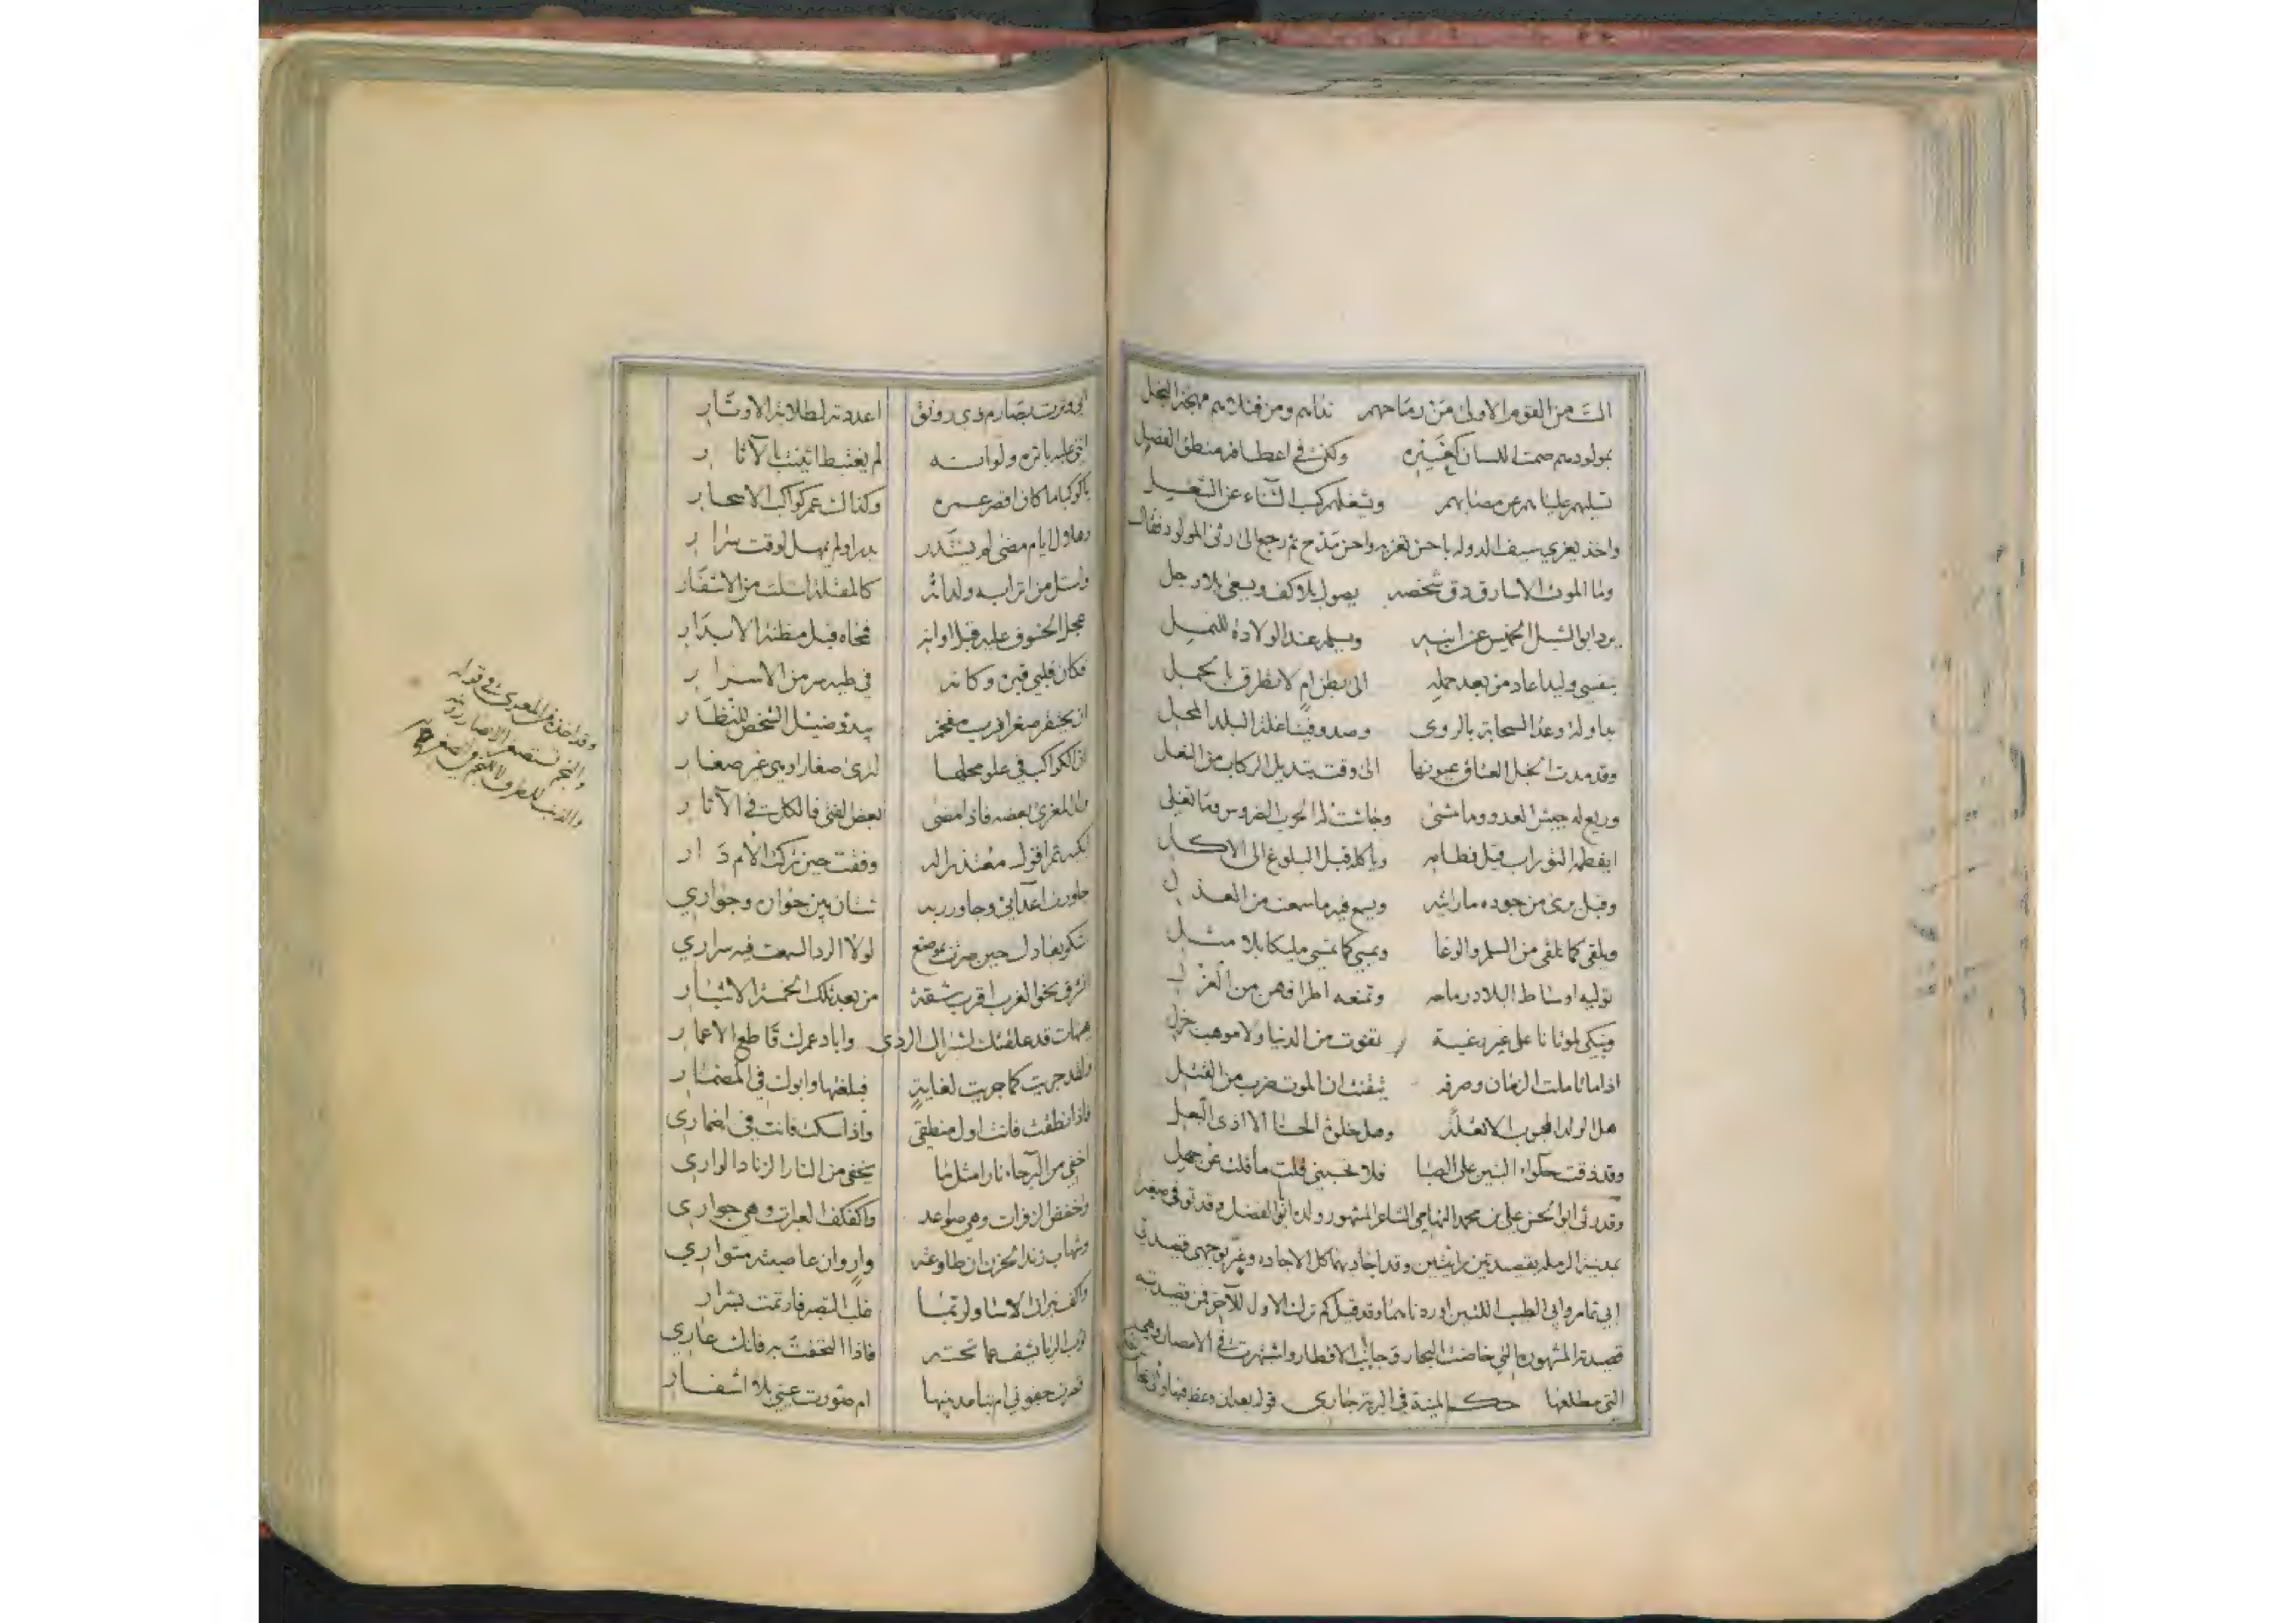 الست من القوم الاولى من رماحهم نداهم ومن قتلاهم مهجة البخل
بمولودهم صمت اللسان كغيره ولكن في اعطافه منطق الفضل
تسليهم علياؤهم عن مصابهم ويشغلهم كسب الثناء عن الشغل
واخذ يعزي سيف الدوله باحسن تعزيه واحسن مدح ثم رجع الى رثى المولود فقال
وما الموت الا سارق دق شخصه يصول بلا كف ويسعى بلا رجل
يرد ابو الشبل الخميس عن ابنه ويسلمه عند الولادة للنمل
بنفسي وليد عاد من بعد حمله الى بطن ام لا تطرق بالحمل
بدا وله وعد السحابة بالروى وصد وفينا غلة البلد المحل
وقد مدت الخيل العتاق عيونها الى وقت تبديل الركاب من النعل
وريع له جيش العدو وما مشى وجاشت له الحرب الضروس وما تغلي
ايفطمه التوراب قبل فطامه وياكله قبل البلوغ الى الاكل
وقبل يرى من جوده ما رايته ويسمع فيه ما سمعت من العذل
ويلقى كما تلقى من السلم والوغا ويمسي كما تمسي مليكا بلا مثل
توليه اوساط البلاد رماحه وتمنعه اطرافهن من العزل
ونبكي لموتانا على غير رغبة تفوت من الدنيا ولا موهب جزل
اذا ما تاملت الزمان وصرفه تيقنت ان الموت ضرب من القتل
هل الولد المحبوب الا تعلة وهل خلوة الحسنا الا اذى البعل
وقد ذقت حلواء البنين على الصبا فلا تحسبني قلت ما قلت عن جهل
وقد رثى ابو الحسن علي بن محمد التهامي الشاعر المشهور ولده ابو الفضل وقد توفى صغيرا
بمدينة الرمله بقصيدتين رائيتين وقد اجاد بهما كل الاجاده وغبر بوجهي قصيدتي
ابي تمام وابي الطيب اللتين اوردناهما وقد قيل كم ترك الاول للآخر فمن قصيدته
قصيدته المشهوره التي خاضت البحار وجابت الاقطار واشتهرت في الامصار وهي
التي مطلعها حكم المنية في البرية جاري قوله بعد ان وعظ فيها
اني وترت بصارم ذي رونق اعددته لطلابة الاوتار
اثني عليه باثره ولو انه لم يغتبط اثنيت بالآثار
يا كوكبا ما كان اقصر عمره وكذا لك عمر كواكب الاسحار
وهلال ايام مضى لم يستدر بدرا ولم يمهل لوقت سرار
واستل من اترابه ولداته كالمقلة استلت من الاشفار
عجل الخسوف عليه قبل اوانه فمحاه قبل مظنة الابدار
فكان قلبي قبره وكانه في طيه سر من الاسرار
ان يحتقر صغرا فرب مفخم يبدو ضئيل الشخص للنظار
ان الكواكب في علو محلها لترى صغارا وهي غير صغار
ولد المعزى بعضه فاذا مضى بعض الفتى فالكل في الآثار
ابكيه ثم اقول معتذرا له وفقت حين تركت الأم دار
جاورت اعدائي وجاور ربه شتان بين جواره وجواري
اشكو بعادك حين صرت بموضع لولا الردا لسمعت فيه سراري
والشرق نحو الغرب اقرب شقة من بعد تلك الخمسة الاشبار
هيهات قد علقتك اشراك الردى واباد عمرك قاطع الاعمار
ولقد جريت كما جريت لغاية فبلغتها وابوك في المضمار
فاذا نطقت فانت اول منطقي واذا سكت فانت في اضماري
اخفي من البرحاء نارا مثل ما يخفى من النار الزناد الواري
واخفض الزفرات وهي صواعد واكفكف العبرات وهي جواري
وشهاب زند الحزن ان طاوعته وار وان عاصيته متواري
واكف نيران الاسا ولربما غلب التصبر فارتمت بشرار
ثوب الريا يشف عما تحته فاذا التحفت به فانك عاري
قصرت جفوني ام تباعد بينها ام صورت عيني بلا اشفار
وقد اخذ هذا المعري في قوله
والنجم تستصغر الابصار رؤيته
والذنب للطرف لا للنجم في الصغر